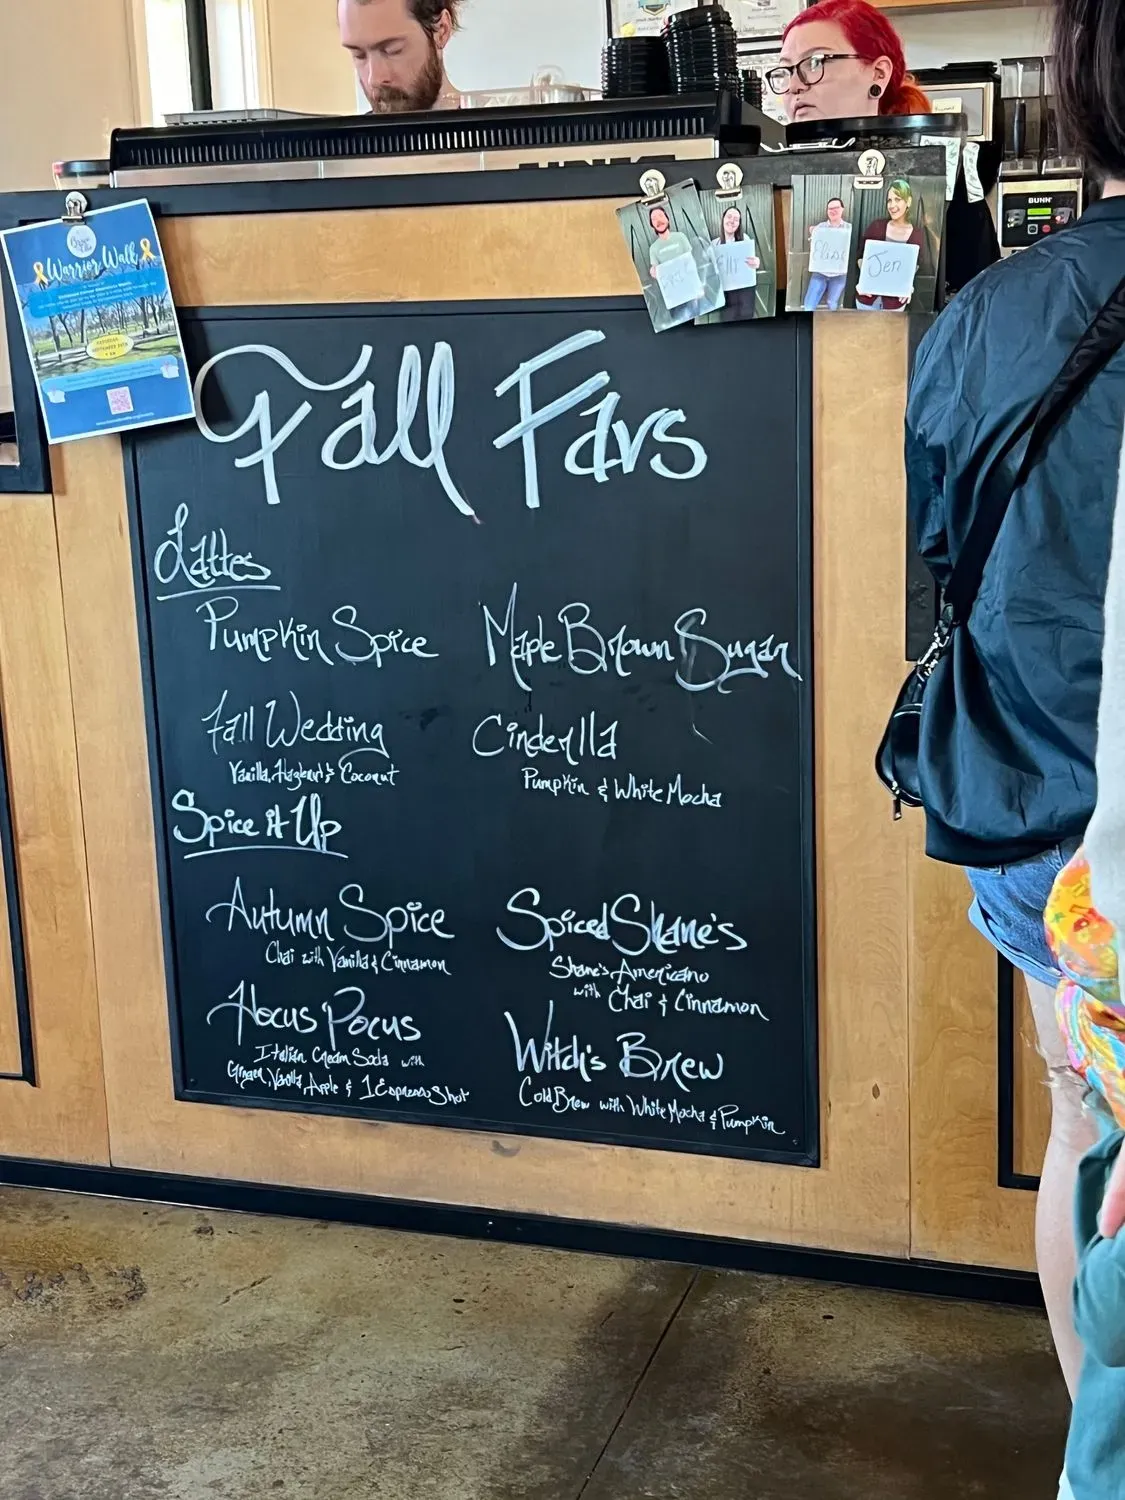 Warrior Walk
SATURDAY,
SEPTEMBER 24TH
Elli
Elise
Jen
BUNN
Fall Favs
Lattes
Pumpkin Spice
Maple Brown Sugar
Fall Wedding
Vanilla, Hazlenut & Coconut
Cinderlla
Pumpkin & White Mocha
Spice it Up
Autumn Spice
Chai with Vanilla & Cinnamon
Spiced Shane's
Shane's Americano
with Chai & Cinnamon
Hocus Pocus
Italian Cream Soda with
Ginger, Vanilla, Apple & 1 Espresso Shot
Witch's Brew
Cold Brew with White Mocha & Pumpkin